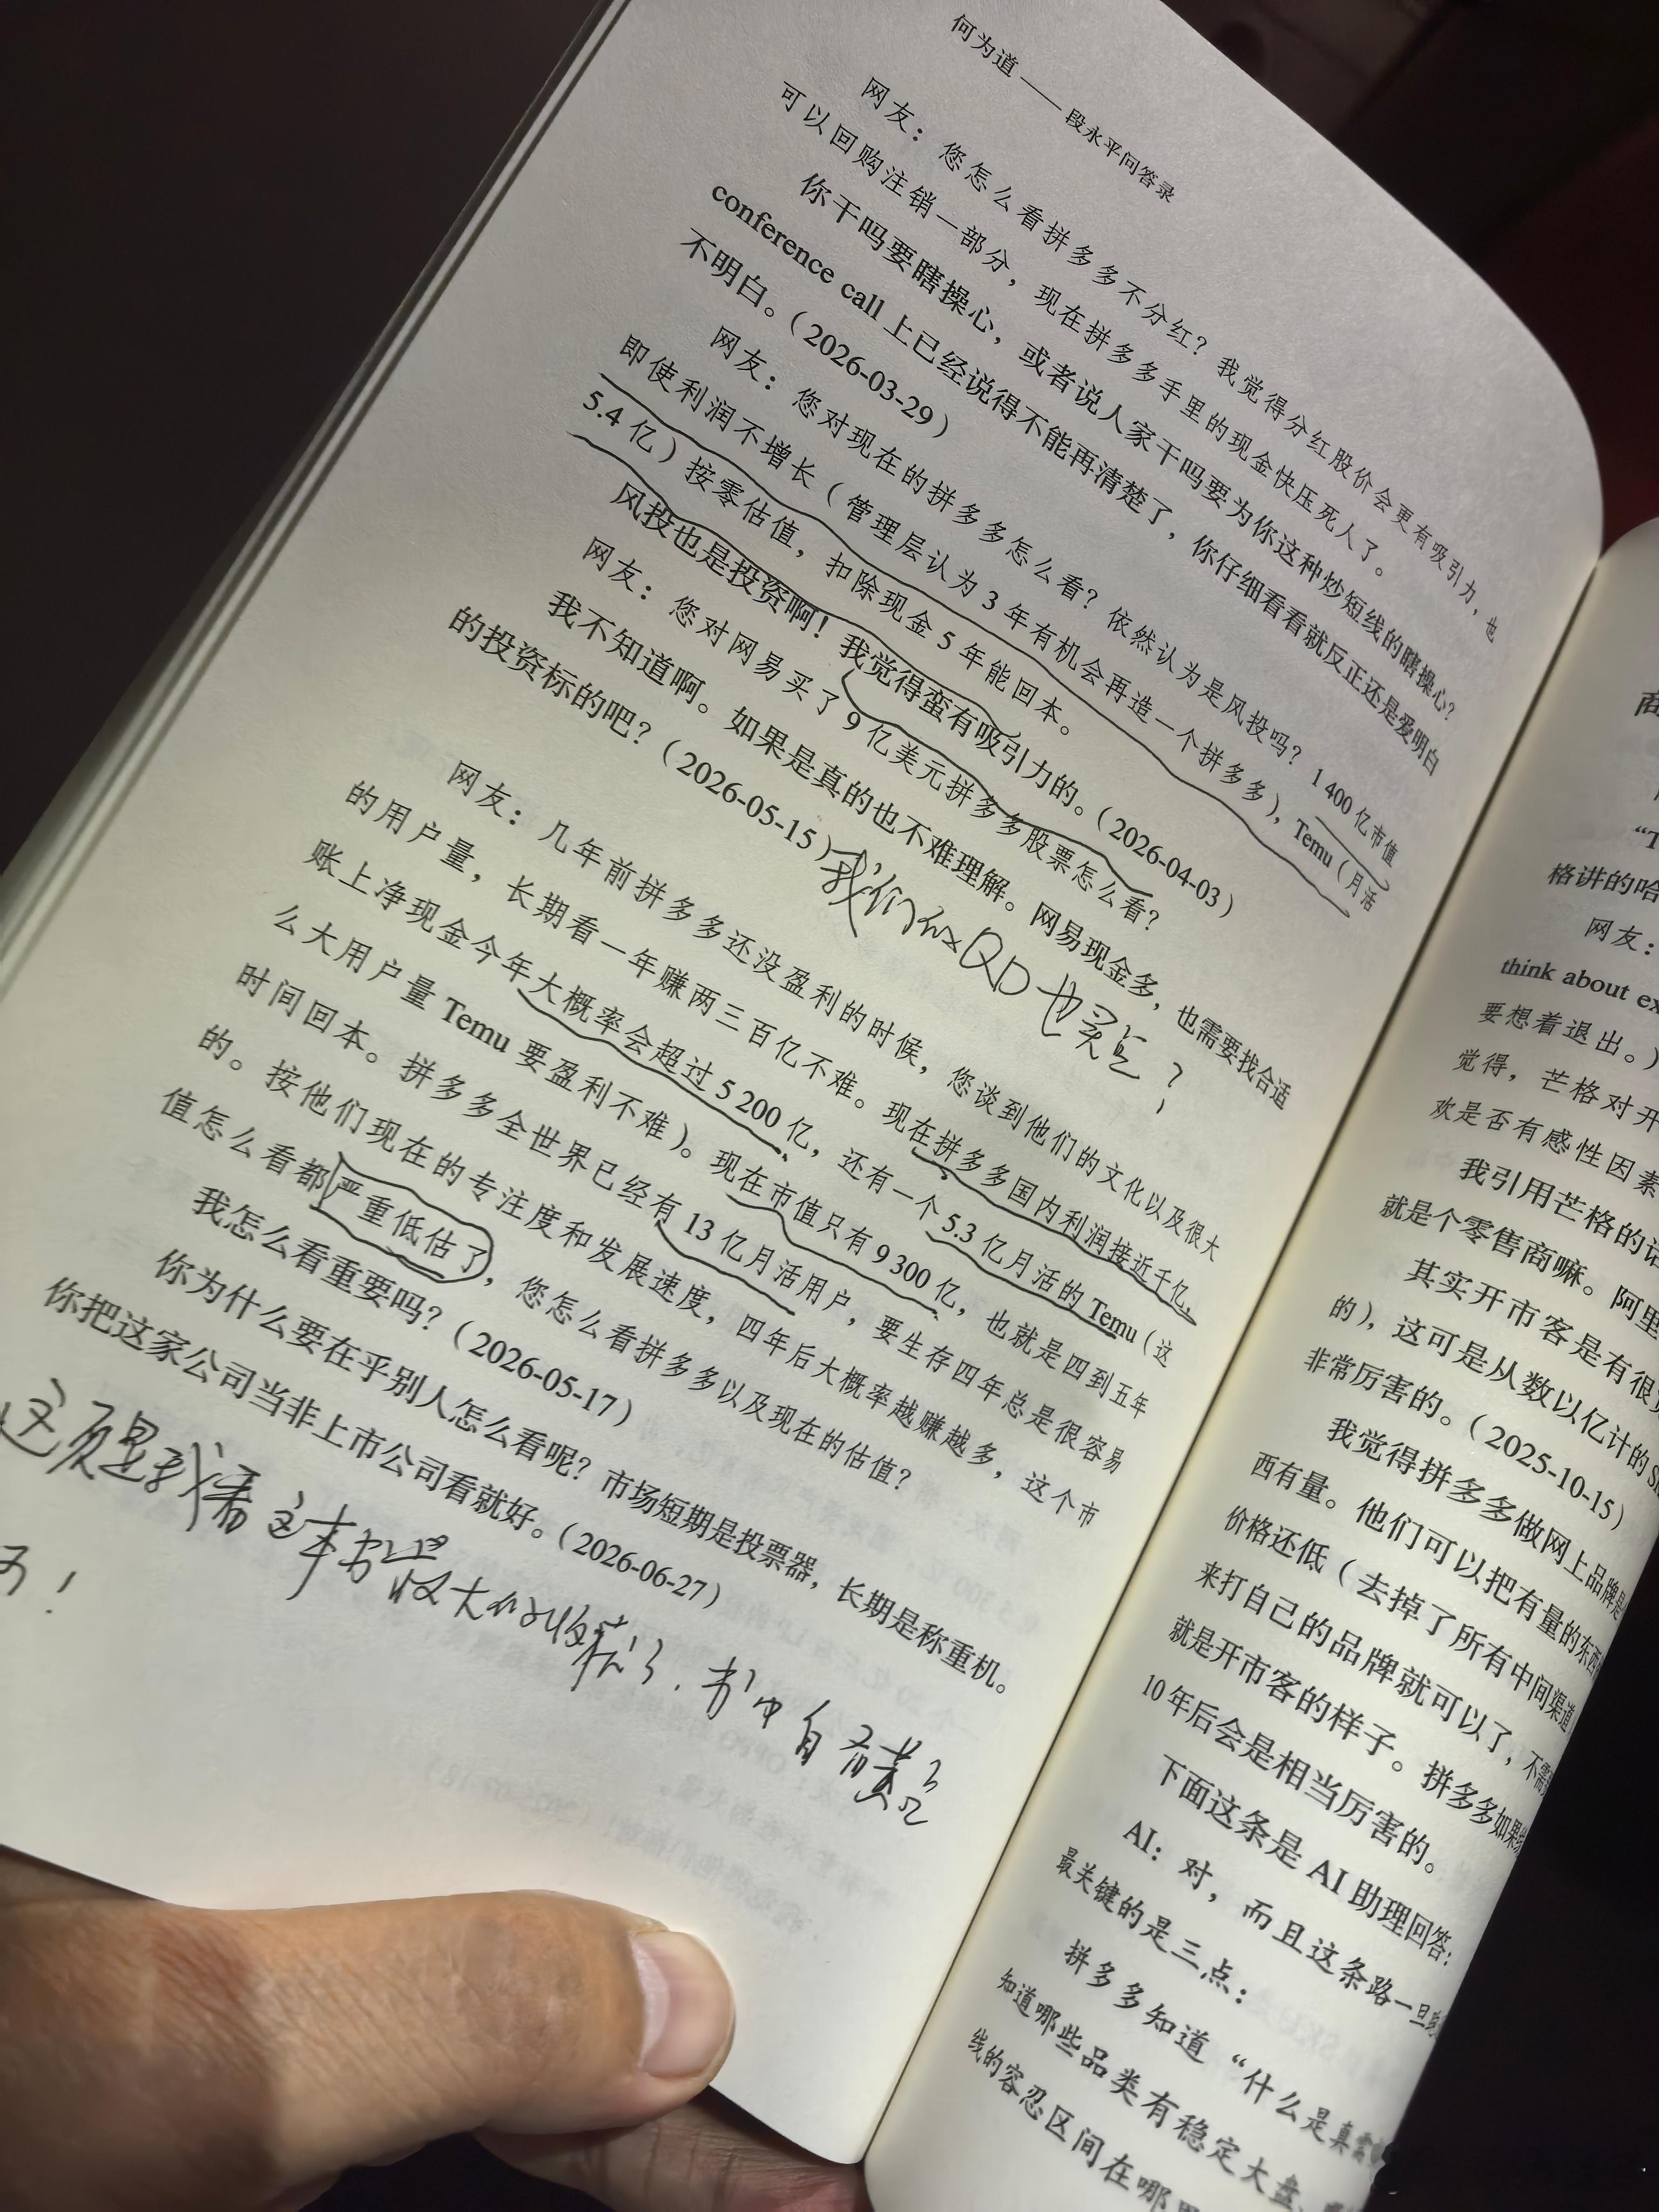 何为道——段永平问答录
网友：您怎么看拼多多不分红？我觉得分红股价会更有吸引力，也
可以回购注销一部分，现在拼多多手里的现金快压死人了。
你干吗要瞎操心，或者说人家干吗要为你这种炒短线的瞎操心？
conference call 上已经说得不能再清楚了，你仔细看看就反正还是爱明白
不明白。（2026-03-29）
网友：您对现在的拼多多怎么看？依然认为是风投吗？1 400 亿市值
即使利润不增长（管理层认为 3 年有机会再造一个拼多多），Temu（月活
5.4 亿）按零估值，扣除现金 5 年能回本。
风投也是投资啊！我觉得蛮有吸引力的。（2026-04-03）
网友：您对网易买了 9 亿美元拼多多股票怎么看？
我不知道啊。如果是真的也不难理解。网易现金多，也需要找合适
的投资标的吧？（2026-05-15）
我们
也买
？
网友：几年前拼多多还没盈利的时候，您谈到他们的文化以及很大
的用户量，长期看一年赚两三百亿不难。现在拼多多国内利润接近千亿，
账上净现金今年大概率会超过 5 200 亿，还有一个 5.3 亿月活的 Temu（这
么大用户量 Temu 要盈利不难）。现在市值只有 9 300 亿，也就是四到五年
时间回本。拼多多全世界已经有 13 亿月活用户，要生存四年总是很容易
的。按他们现在的专注度和发展速度，四年后大概率越赚越多，这个市
值怎么看都严重低估了，您怎么看拼多多以及现在的估值？
我怎么看重要吗？（2026-05-17）
你为什么要在乎别人怎么看呢？市场短期是投票器，长期是称重机。
你把这家公司当非上市公司看就好。（2026-06-27）
这页是我看这本书最大的收获了．书中自有黄
！
商
“T
格讲的哈
网友：
think about ex
要想着退出。）
觉得，芒格对开
欢是否有感性因素
我引用芒格的话
就是个零售商嘛。阿里
其实开市客是有很
的），这可是从数以亿计的
非常厉害的。（2025-10-15）
我觉得拼多多做网上品牌是
西有量。他们可以把有量的东西
价格还低（去掉了所有中间渠道
来打自己的品牌就可以了，不需
就是开市客的样子。拼多多如果
10 年后会是相当厉害的。
下面这条是 AI 助理回答：
AI：对，而且这条路一旦
最关键的是三点：
拼多多知道“什么是真需
知道哪些品类有稳定大盘、
线的容忍区间在哪里